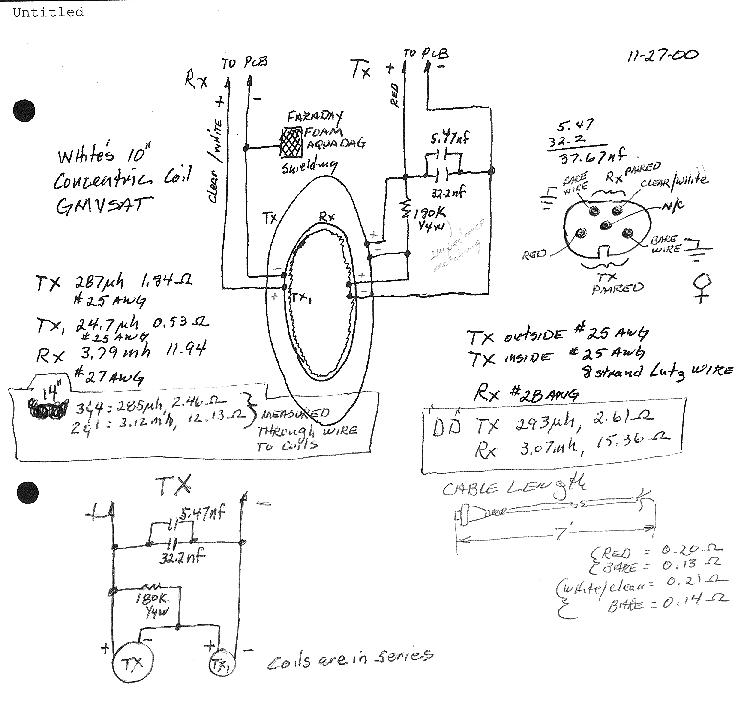 Untitled
11-27-00
TO PCB
Rx + -
TO PCB
Tx + -
RED
CLEAR/WHITE
FARADAY
FOAM
AQUADAG
Shielding
White's 10"
Concentric Coil
GMVSAT
5.47nf
32.2nf
180K
1/4W
5.47
32.2
37.67nf
Rx PAIRED
BARE
WIRE
CLEAR/White
N/C
RED
BARE
WIRE
TX
PAIRED
Tx
Rx
TX1
TX 287µh 1.84Ω
#25 AWG
TX1 24.7µh 0.53Ω
#25 AWG
Rx 3.79mh 11.94
#27 AWG
14"
3&4 = 285µh, 2.46Ω
2&1 = 3.12mh, 12.13Ω
MEASURED
THROUGH WIRE
TO COILS
TX outside #25 AWG
TX inside #25 AWG
8 strand Lutz WIRE
Rx #28 AWG
DD TX 293µh, 2.61Ω
Rx 3.07mh, 15.36Ω
CABLE Length
7'
RED = 0.20Ω
BARE = 0.13Ω
White/clear = 0.21Ω
BARE = 0.14Ω
TX
+ -
5.47nf
32.2nf
180K
1/4W
+ - + -
TX TX1
Coils are in series